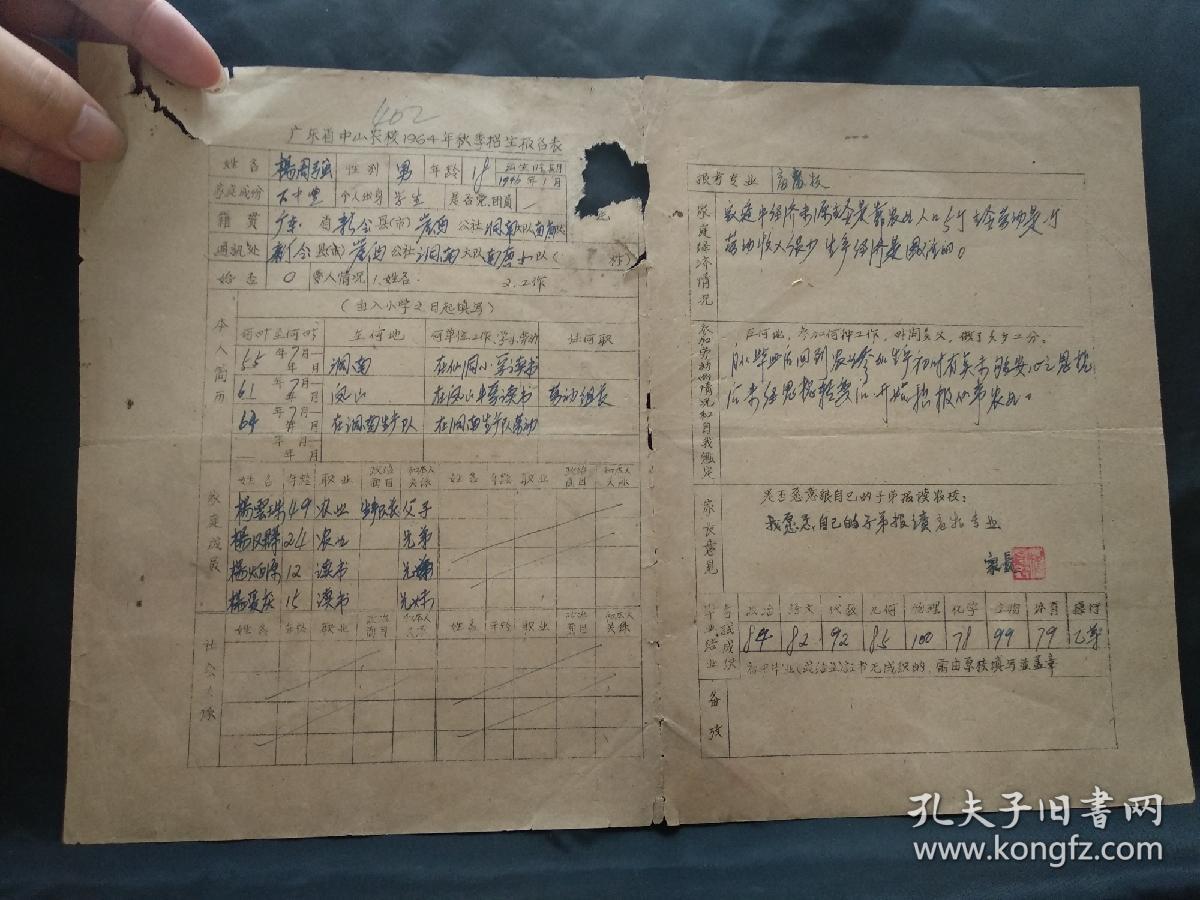 402
广东省中山农校1964年秋季招生报名表
姓名 楊周强 性别 男 年龄 18 出生日期 1946年1月
家庭成份 下中農 个人出身 学生 是否党,团员
籍贯 广东 省 新会 县(市) 崖西 公社 洞南 大队
通訊处 新会 县(市) 崖西 公社 洞南 大队 南 小队(
婚否 0 爱人情况 1.姓名 2.工作
本人简历
(由入小学之日起填写)
何时至何时 在何地 何单位工作、学习、劳动 任何职
55年7月— 年 月 洞南 在仙洞小学读书
61年7月— 年 月 凤山 在凤山中学读书 劳动组长
64年7月— 年 月 在洞南生产队 在洞南生产队劳动
年 月— 年 月
家庭成员
姓名 年龄 职业 政治面目 和本人关系 姓名 年龄 职业 政治面目 和本人关系
楊 49 农业 生产队长 父子
楊 24 农业 兄弟
楊 12 读书 兄
楊 15 读书 兄妹
社会关系
姓名 年龄 职业 政治面目 和本人关系 姓名 年龄 职业 政治面目 和本人关系
报考专业 畜
家庭经济情况
家庭中经济来源主要是靠农业人口5个主要劳动是1个
劳动收入很少 生产经济是困难的。
参加劳动的情况和自我鑑定
在何地,参加何种工作,时间多久,做了多少工分。
从毕业后回到农业参加生产初时有
后来经思想转变后开始积极从事农业。
家长意见
是否愿意报自己的子弟报读农校:
我愿意自己的子弟报读 专业
家長
毕业结业考试成织
政治 语文 代数 几何 物理 化学 生物 体育 操行
84 82 92 85 100 78 99 79 乙等
初中毕业(或结业)証书无成织的,需由原校填写並盖章
备攷
孔夫子旧書网
www.kongfz.com